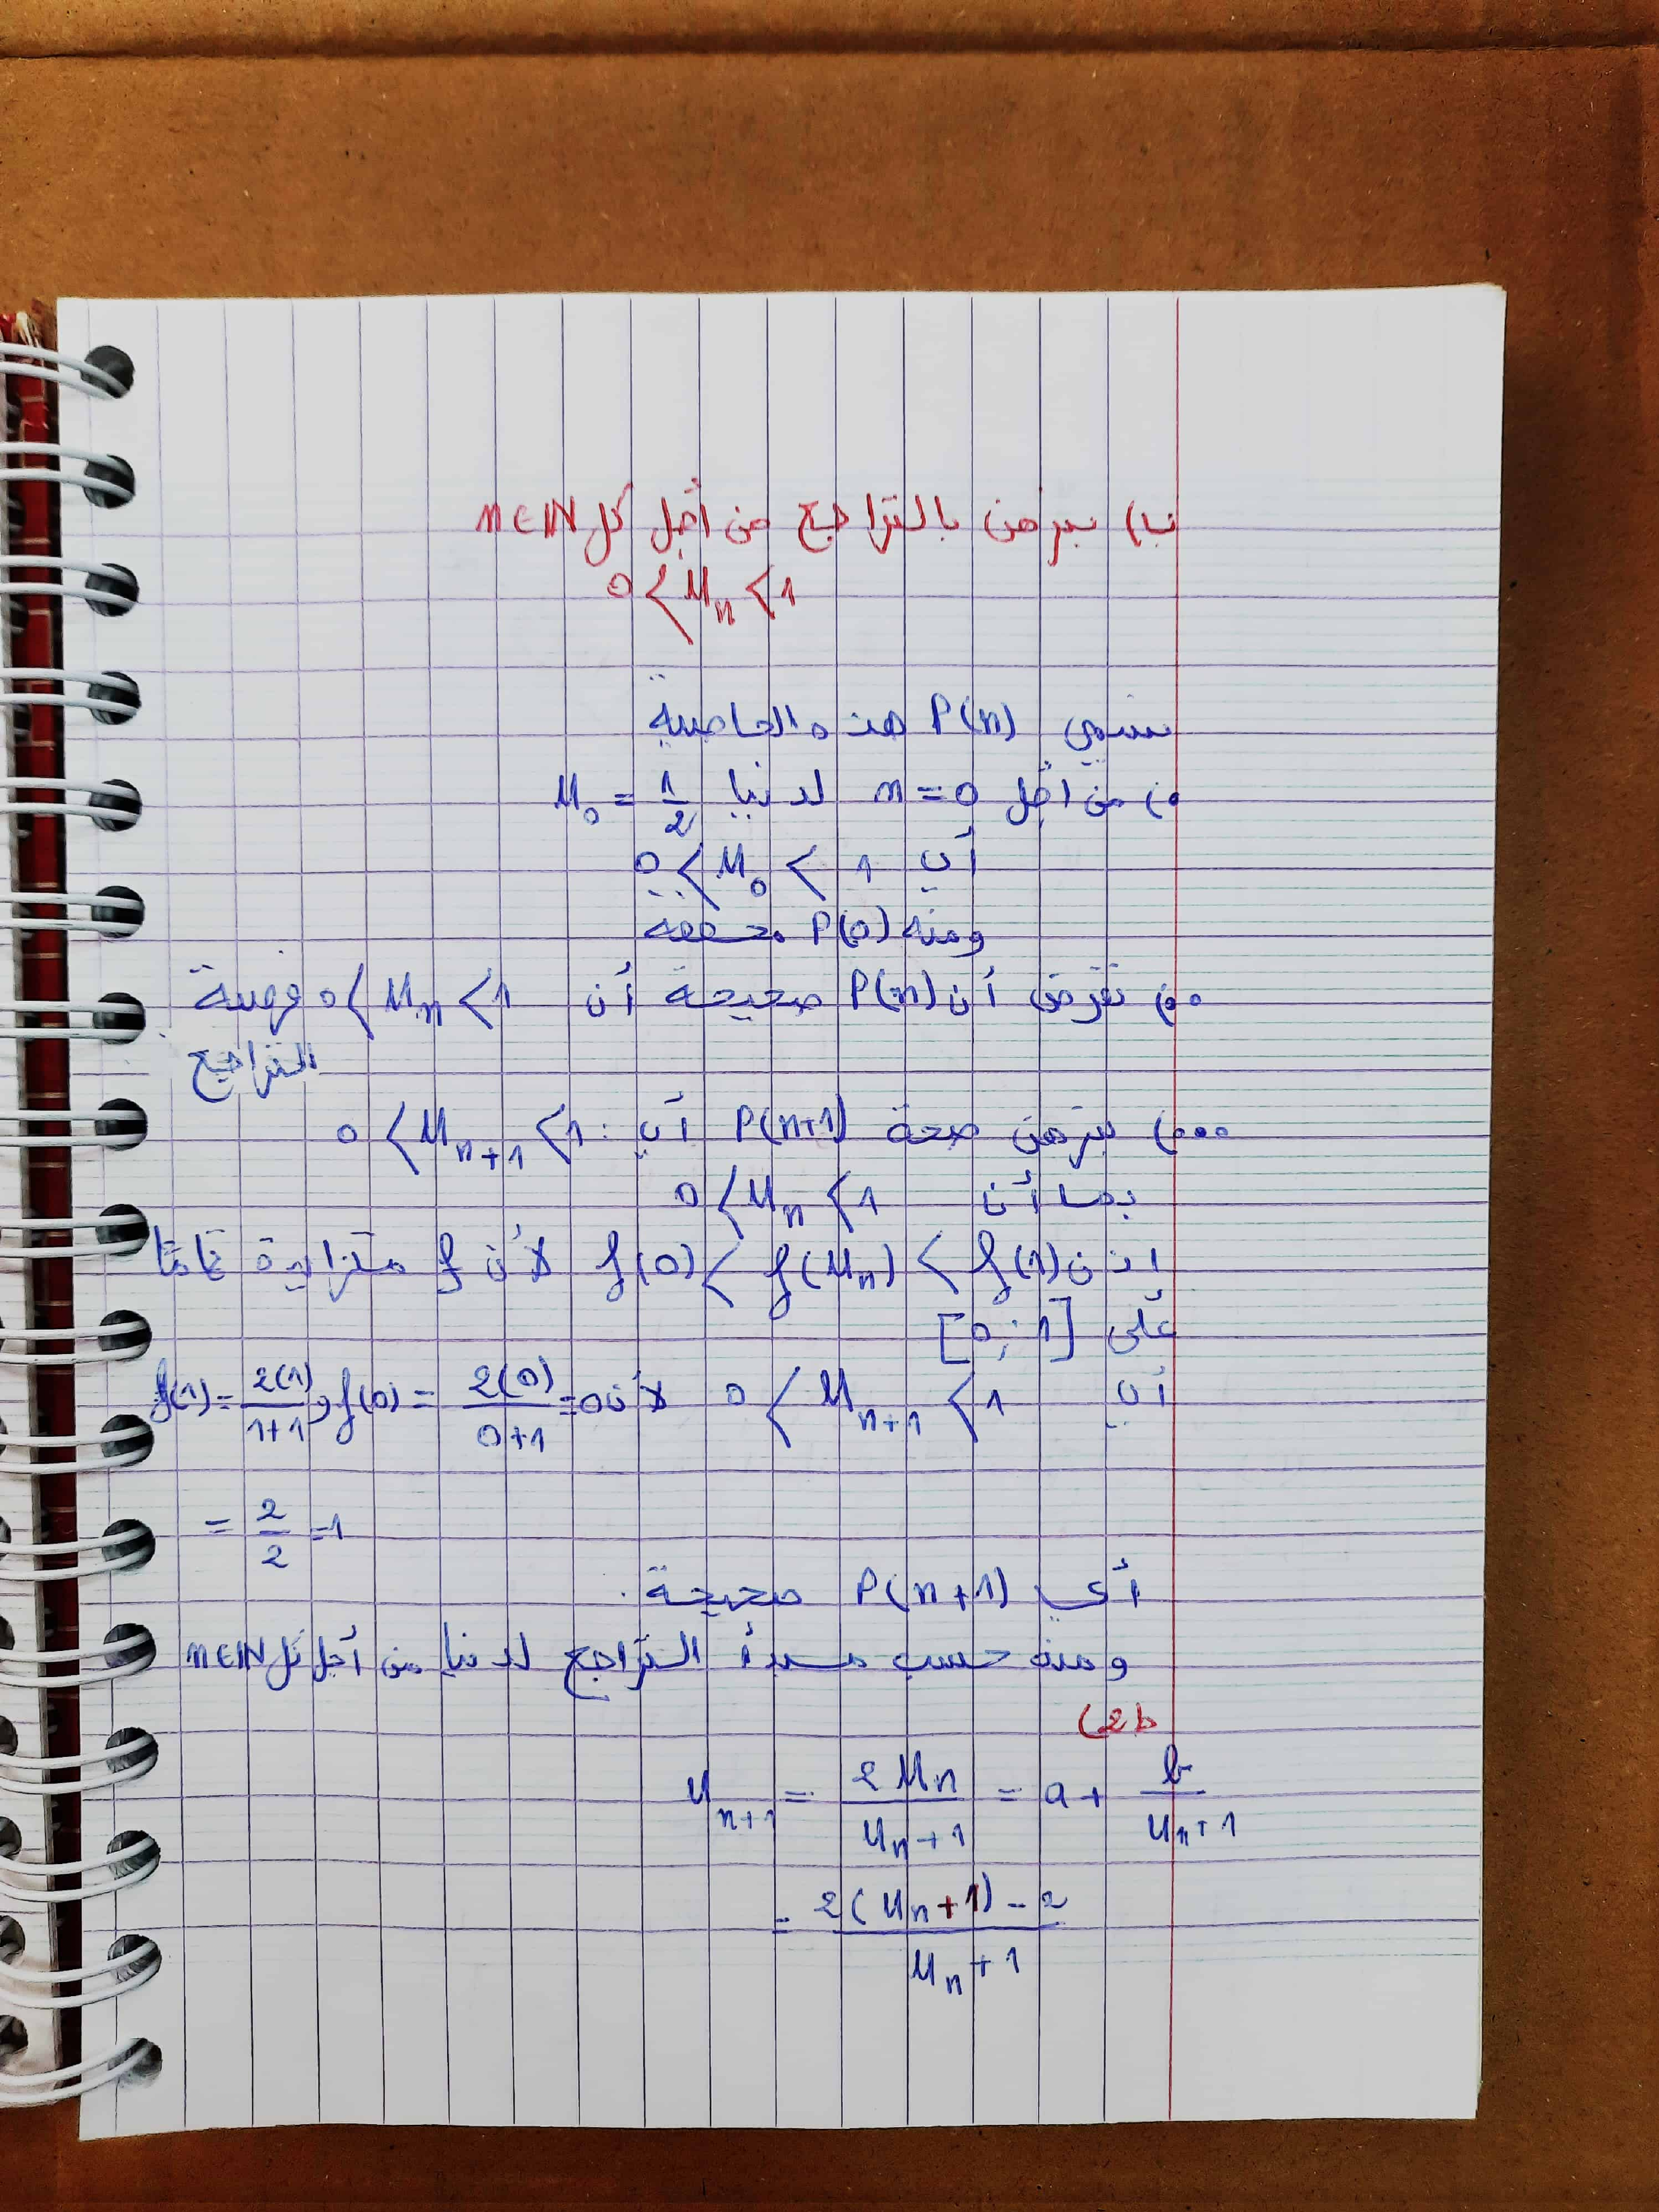 نبرهن بالتراجع من أجل كل n∈IN
0 < Un < 1
نسمي P(n) هذه الخاصية
من أجل n = 0 لدينا U0 = 1/2
أي 0 < U0 < 1
ومنه P(0) محققة
نفرض أن P(n) صحيحة أن 0 < Un < 1 فرضية
التراجع
نبرهن صحة P(n+1) أي : 0 < Un+1 < 1
بما أن 0 < Un < 1
اذن f(0) < f(Un) < f(1) لأن f متزايدة تمامًا
على [0 ; 1]
أي 0 < Un+1 < 1 لأن f(0) = 2(0)/0+1 = 0 و f(1) = 2(1)/1+1
= 2/2 = 1
أي P(n+1) صحيحة .
ومنه حسب مبدأ التراجع لدينا من أجل كل n∈IN
2b)
Un+1 = 2Un/Un+1 = a + b/Un+1
= 2(Un+1) - 2/Un+1